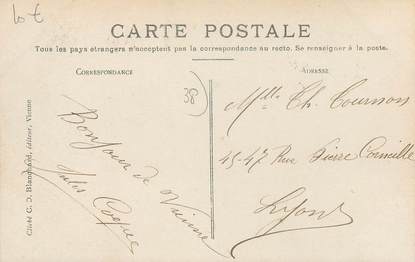 10 €
CARTE POSTALE
Tous les pays étrangers n'acceptent pas la correspondance au recto. Se renseigner à la poste.
CORRESPONDANCE
ADRESSE
38
Bonjour de Vienne
Jules
Cliché C. D. Blanchard, éditeur, Vienne
Mlle Th. Tournon
45-47 Rue Pierre Corneille
Lyon